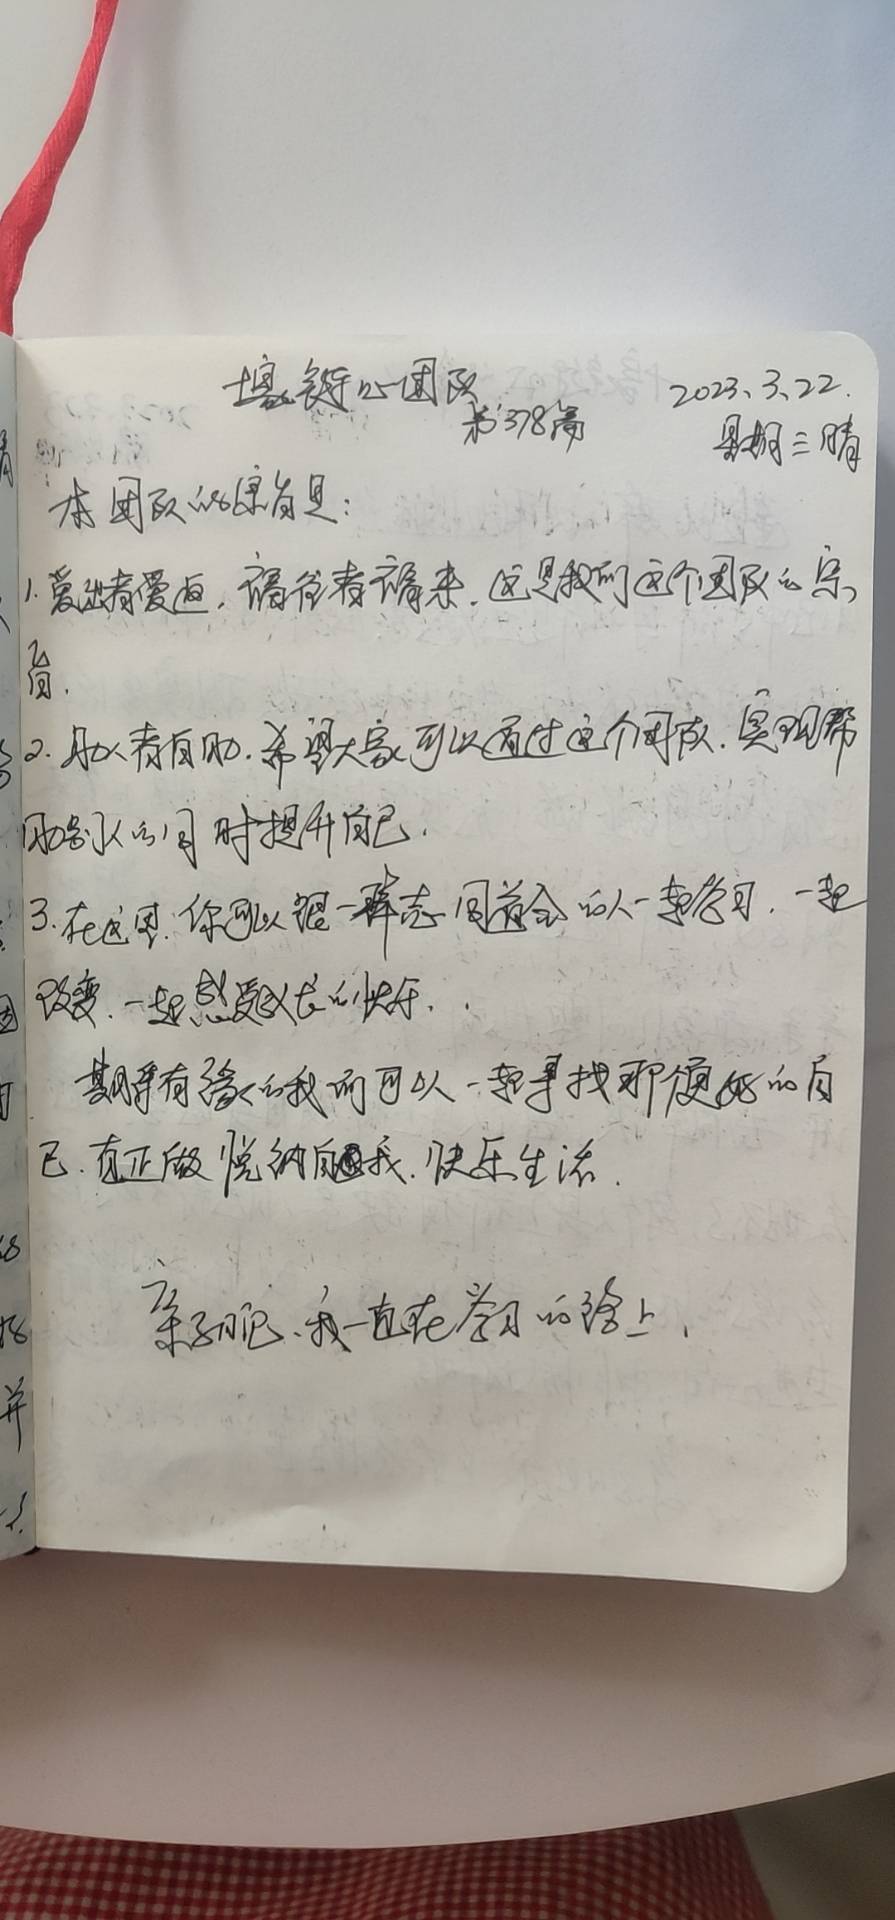 团队 2023.3.22.
第378篇 星期三 晴
本团队的宗旨是:
1.爱出者爱返,福往者福来,这是我们这个团队的宗
旨.
2.助人者自助.希望大家可以通过这个团队,实现帮
助别人的同时提升自己.
3.在这里.你可以跟一群志同道合的人一起学习,一起
改变.一起感受成长的快乐.
期待有缘的我们可以一起寻找那个更好的自
己.真正做悦纳自我.快乐生活.
亲子 .我一直在学习的路上.